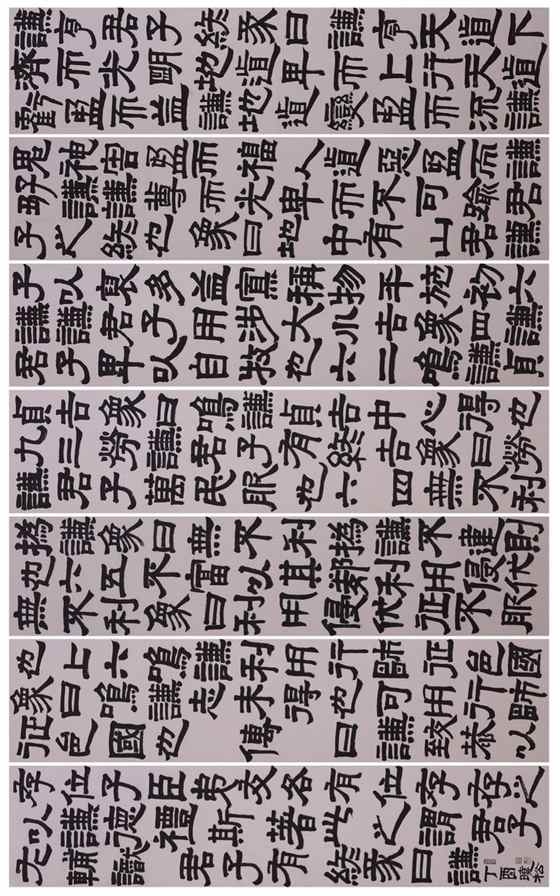 謙亨君子終彖曰謙亨天道下
濟而光明地道卑而上行天道
虧盈而益謙地道變盈而流謙
鬼神害盈而福人道惡盈而謙
好謙謙尊而光卑而不可踰君
子之終也象曰地中有山君謙
子以裒多益寡稱物平施初六
謙謙君子用涉大川吉象曰謙
君子卑以自牧也六二鳴謙貞
貞吉象曰鳴謙貞吉中心得也
九三勞謙君子有終吉象曰勞
謙君子萬民服也六四無不利
撝謙象曰無不利撝謙不違則
也六五不富以其鄰利用侵伐
無不利象曰利用侵伐征不服
也上六鳴謙利用行師征邑國
象曰鳴謙志未得也可用行師
征邑國也傳曰謙致恭以
位子臣友各有位存之
以謙禮斯著此之謂君子
輔君子有終彖曰謙
丁酉